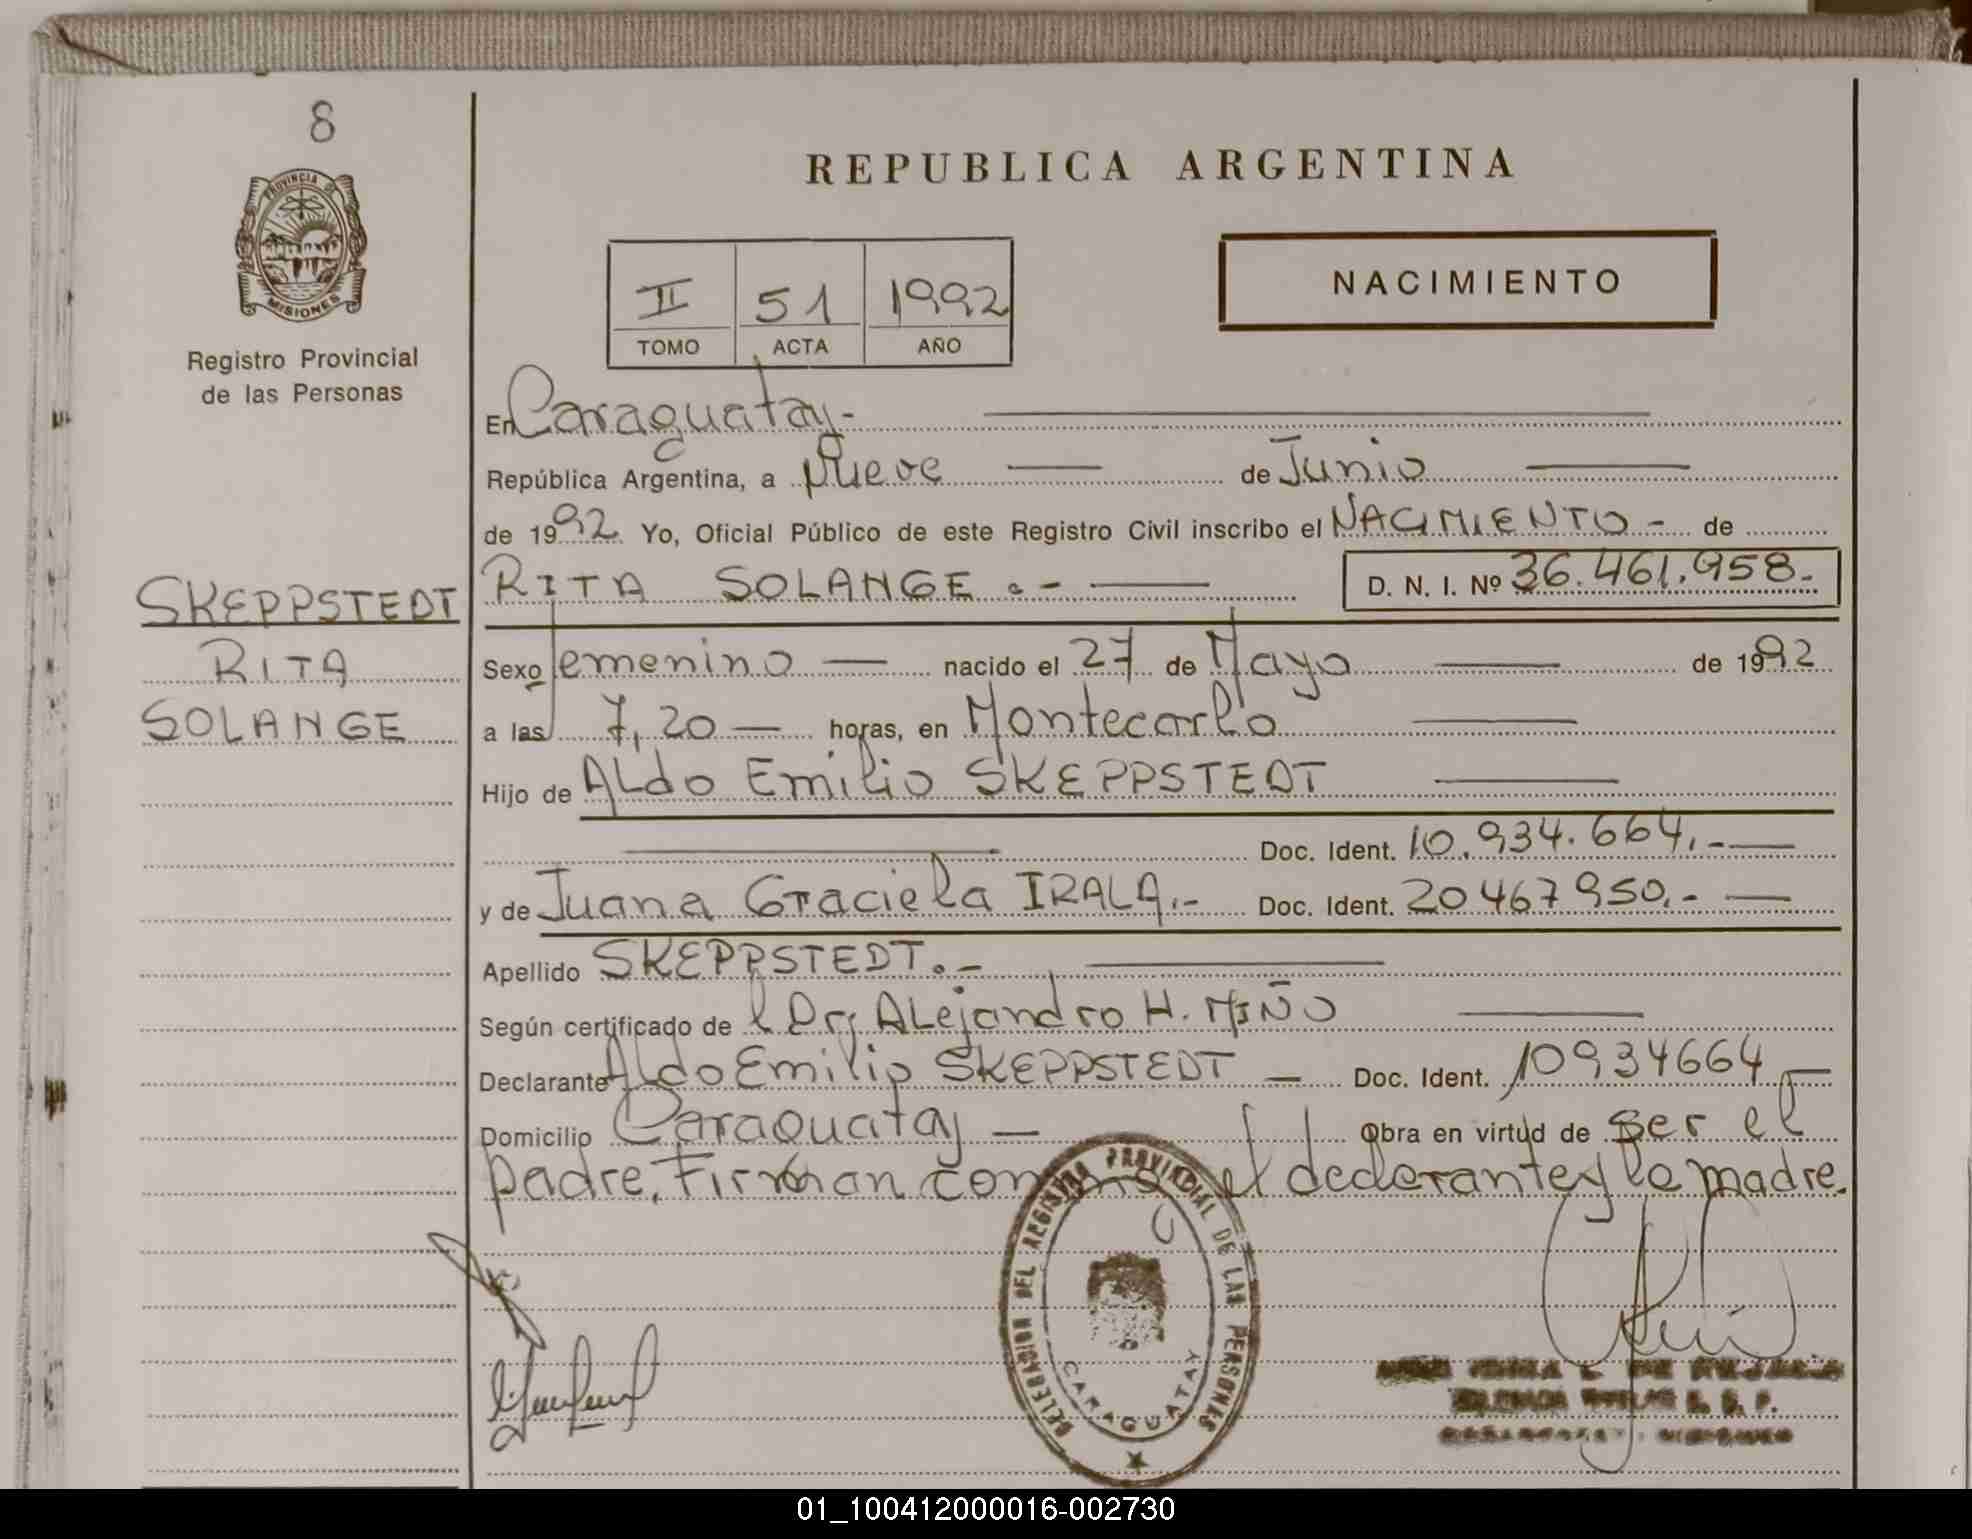 8
PROVINCIA DE
MISIONES
Registro Provincial
de las Personas
SKEPPSTEDT
RITA
SOLANGE
REPUBLICA ARGENTINA
II 51 1992
TOMO ACTA AÑO
NACIMIENTO
En Caraguatay.-
República Argentina, a Nueve de Junio
de 1992 Yo, Oficial Público de este Registro Civil inscribo el NACIMIENTO - de
RITA SOLANGE .- D. N. I. Nº 36.461.958.-
Sexo femenino — nacido el 27 de Mayo — de 1992
a las 7,20 — horas, en Montecarlo
Hijo de Aldo Emilio SKEPPSTEDT
Doc. Ident. 10.934.664.-
y de Juana Graciela IRALA.- Doc. Ident. 20467950.-
Apellido SKEPPSTEDT.-
Según certificado de l Dr. Alejandro H. MIÑO
Declarante Aldo Emilio SKEPPSTEDT — Doc. Ident. 10934664
Domicilio Caraguatay — Obra en virtud de ser el
padre. Firman conmigo el declarante y la madre.
DELEGACION DEL REGISTRO PROVINCIAL DE LAS PERSONAS
CARAGUATAY
01_100412000016-002730